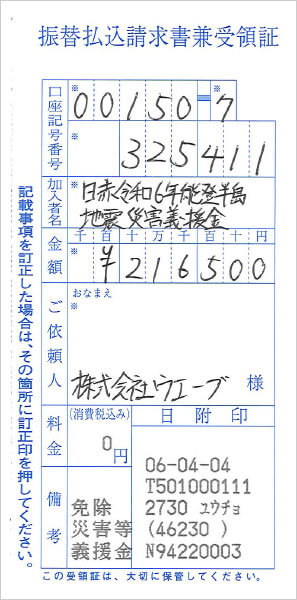 振替払込請求書兼受領証
口座記号番号
※
00150=7
※
325411
加入者名
※
日赤令和6年能登半島
地震災害義援金
金額
千百十万千百十円
※
¥216500
ご依頼人
おなまえ
※
株式会社ウエーブ 様
料金
(消費税込み)
0
円
日附印
備考
免除
災害等
義援金
06-04-04
T501000111
2730 ユウチョ
(46230 )
N94220003
この受領証は、大切に保管してください。
記載事項を訂正した場合は、その箇所に訂正印を押してください。